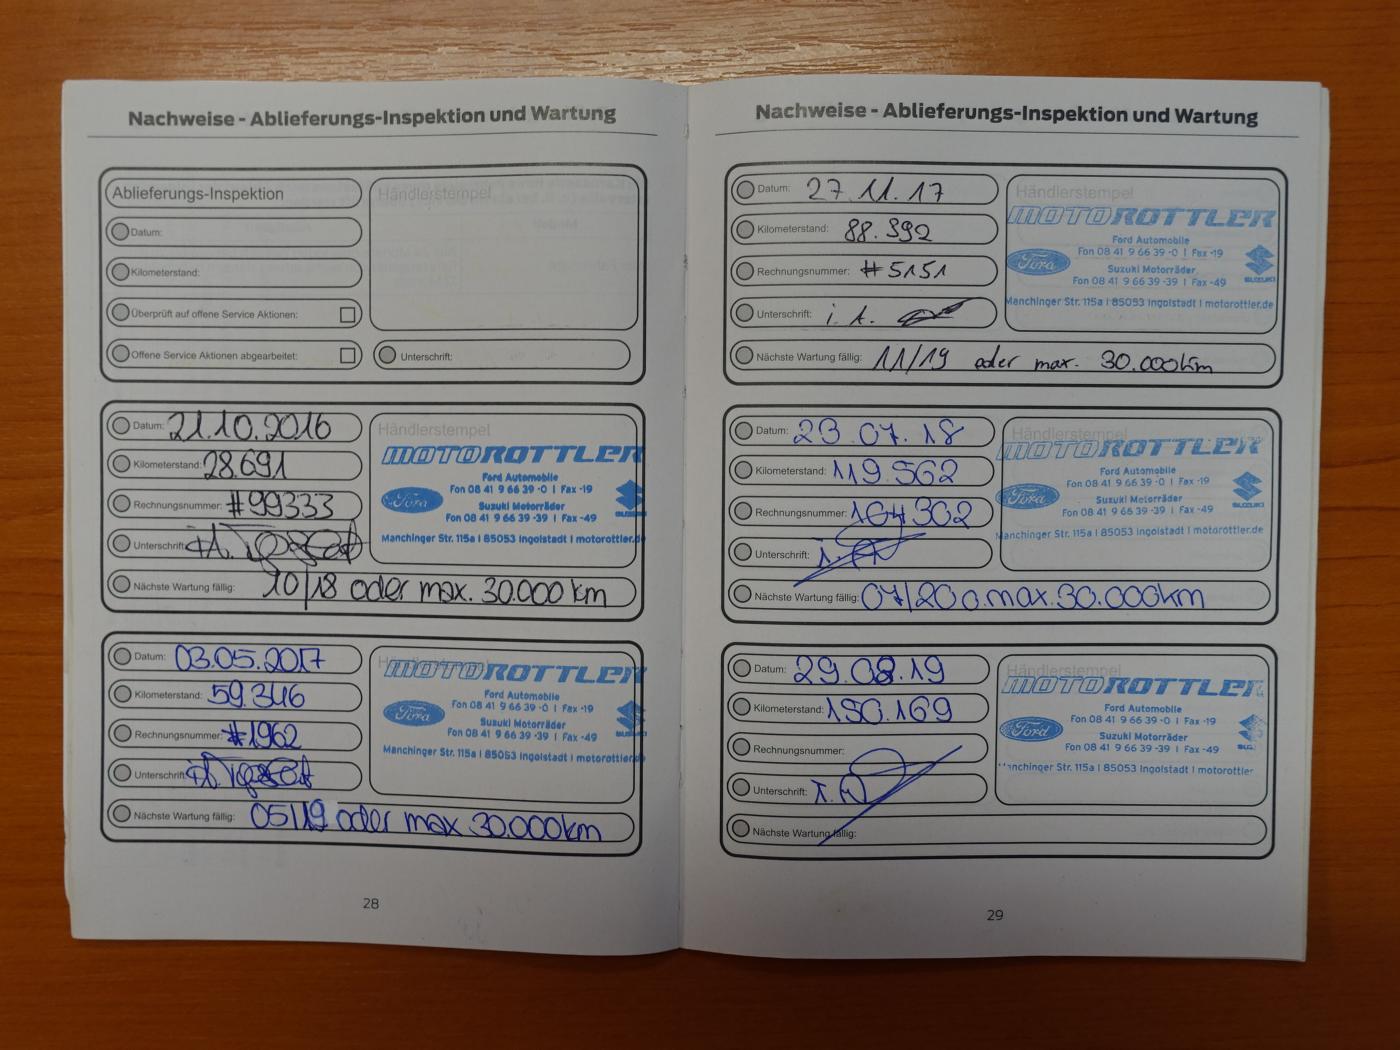 Nachweise - Ablieferungs-Inspektion und Wartung
Ablieferungs-Inspektion
Händlerstempel
Datum:
Kilometerstand:
Überprüft auf offene Service Aktionen:
Offene Service Aktionen abgearbeitet:
Unterschrift:
Datum: 21.10.2016
Kilometerstand: 28.691
Rechnungsnummer: #99333
Unterschrift:
Nächste Wartung fällig: 10/18 oder max. 30.000 km
Händlerstempel
MOTOROTTLER
Ford Automobile
Ford
Fon 08 41 9 66 39 -0 | Fax -19
Suzuki Motorräder
Fon 08 41 9 66 39 -39 | Fax -49
SUZUKI
Manchinger Str. 115a | 85053 Ingolstadt | motorottler.de
Datum: 03.05.2017
Kilometerstand: 59.346
Rechnungsnummer: #1962
Unterschrift:
Nächste Wartung fällig: 05/19 oder max 30.000km
MOTOROTTLER
Ford Automobile
Ford
Fon 08 41 9 66 39 -0 | Fax -19
Suzuki Motorräder
Fon 08 41 9 66 39 -39 | Fax -49
Manchinger Str. 115a | 85053 Ingolstadt | motorottler.de
28
Nachweise - Ablieferungs-Inspektion und Wartung
Datum: 27.11.17
Kilometerstand: 88.392
Rechnungsnummer: #5151
Unterschrift: i. A.
Nächste Wartung fällig: 11/19 oder max. 30.000km
Händlerstempel
MOTOROTTLER
Ford Automobile
Ford
Fon 08 41 9 66 39 -0 | Fax -19
Suzuki Motorräder
Fon 08 41 9 66 39 -39 | Fax -49
SUZUKI
Manchinger Str. 115a | 85053 Ingolstadt | motorottler.de
Datum: 23.07.18
Kilometerstand: 119.562
Rechnungsnummer: 104302
Unterschrift:
Nächste Wartung fällig: 07/20 o. max. 30.000km
Händlerstempel
MOTOROTTLER
Ford Automobile
Ford
Fon 08 41 9 66 39 -0 | Fax -19
Suzuki Motorräder
Fon 08 41 9 66 39 -39 | Fax -49
SUZUKI
Manchinger Str. 115a | 85053 Ingolstadt | motorottler.de
Datum: 29.08.19
Kilometerstand: 150.169
Rechnungsnummer:
Unterschrift:
Nächste Wartung fällig:
Händlerstempel
MOTOROTTLER
Ford Automobile
Ford
Fon 08 41 9 66 39 -0 | Fax -19
Suzuki Motorräder
Fon 08 41 9 66 39 -39 | Fax -49
Manchinger Str. 115a | 85053 Ingolstadt | motorottler
29